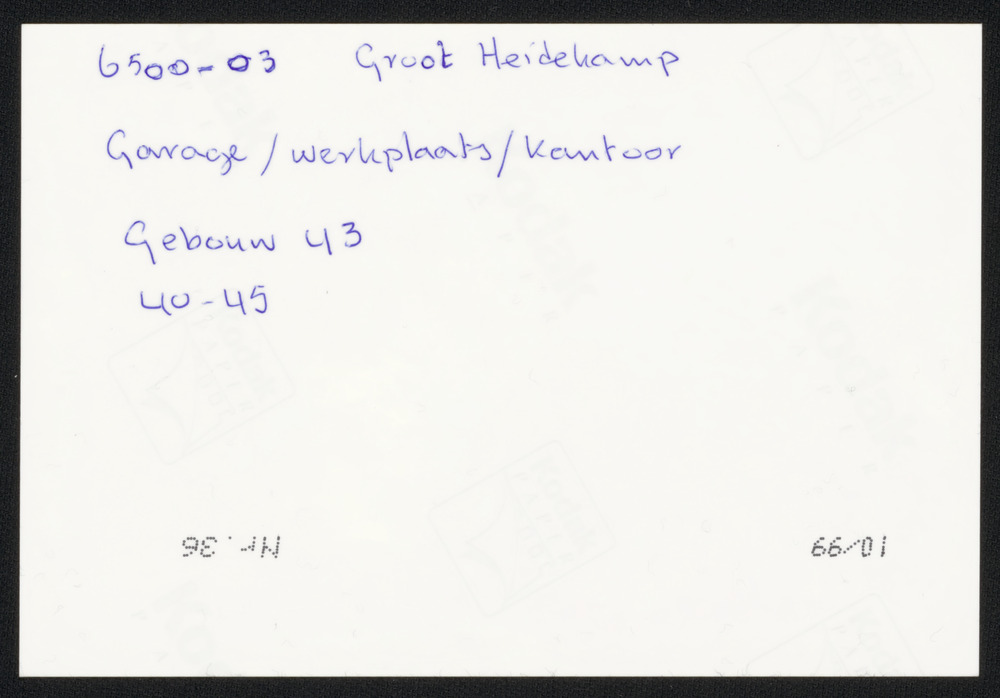 6500-03 Groot Heidekamp
Garage / werkplaats / kantoor
Gebouw 43
40-45
Nr. 36
10/99